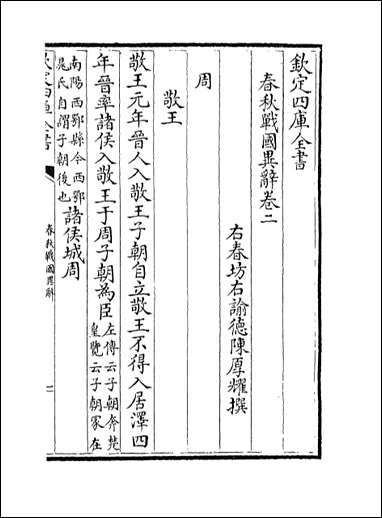 欽定四庫全書
春秋戰國異辭卷二
右春坊右諭德陳厚耀撰
周
敬王
敬王元年晉人入敬王子朝自立敬王不得入居澤四
年晉率諸侯入敬王于周子朝為臣左傳云子朝奔楚
皇覽云子朝冢在
南陽西鄂縣今西鄂
晁氏自謂子朝後也諸侯城周
欽定四庫全書
春秋戰國異辭
一